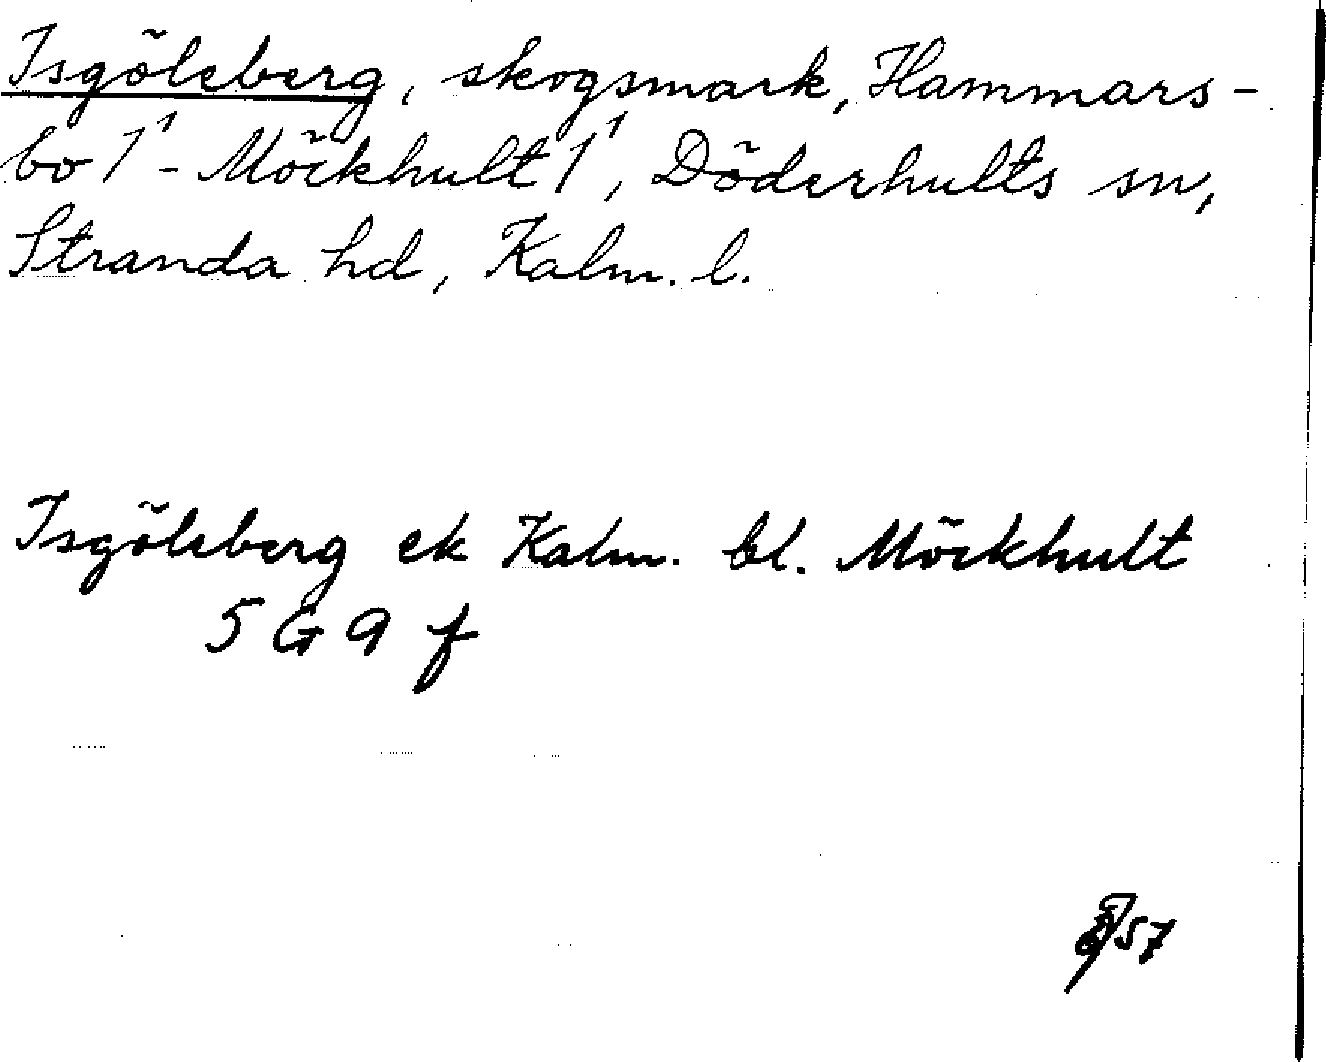 Isgöleberg, skogsmark, Hammars-
bo 1¹ - Möckhult 1¹, Döderhults sn,
Stranda hd, Kalm. l.
Isgöleberg ek Kalm. bl. Möckhult
5 G 9 f
57